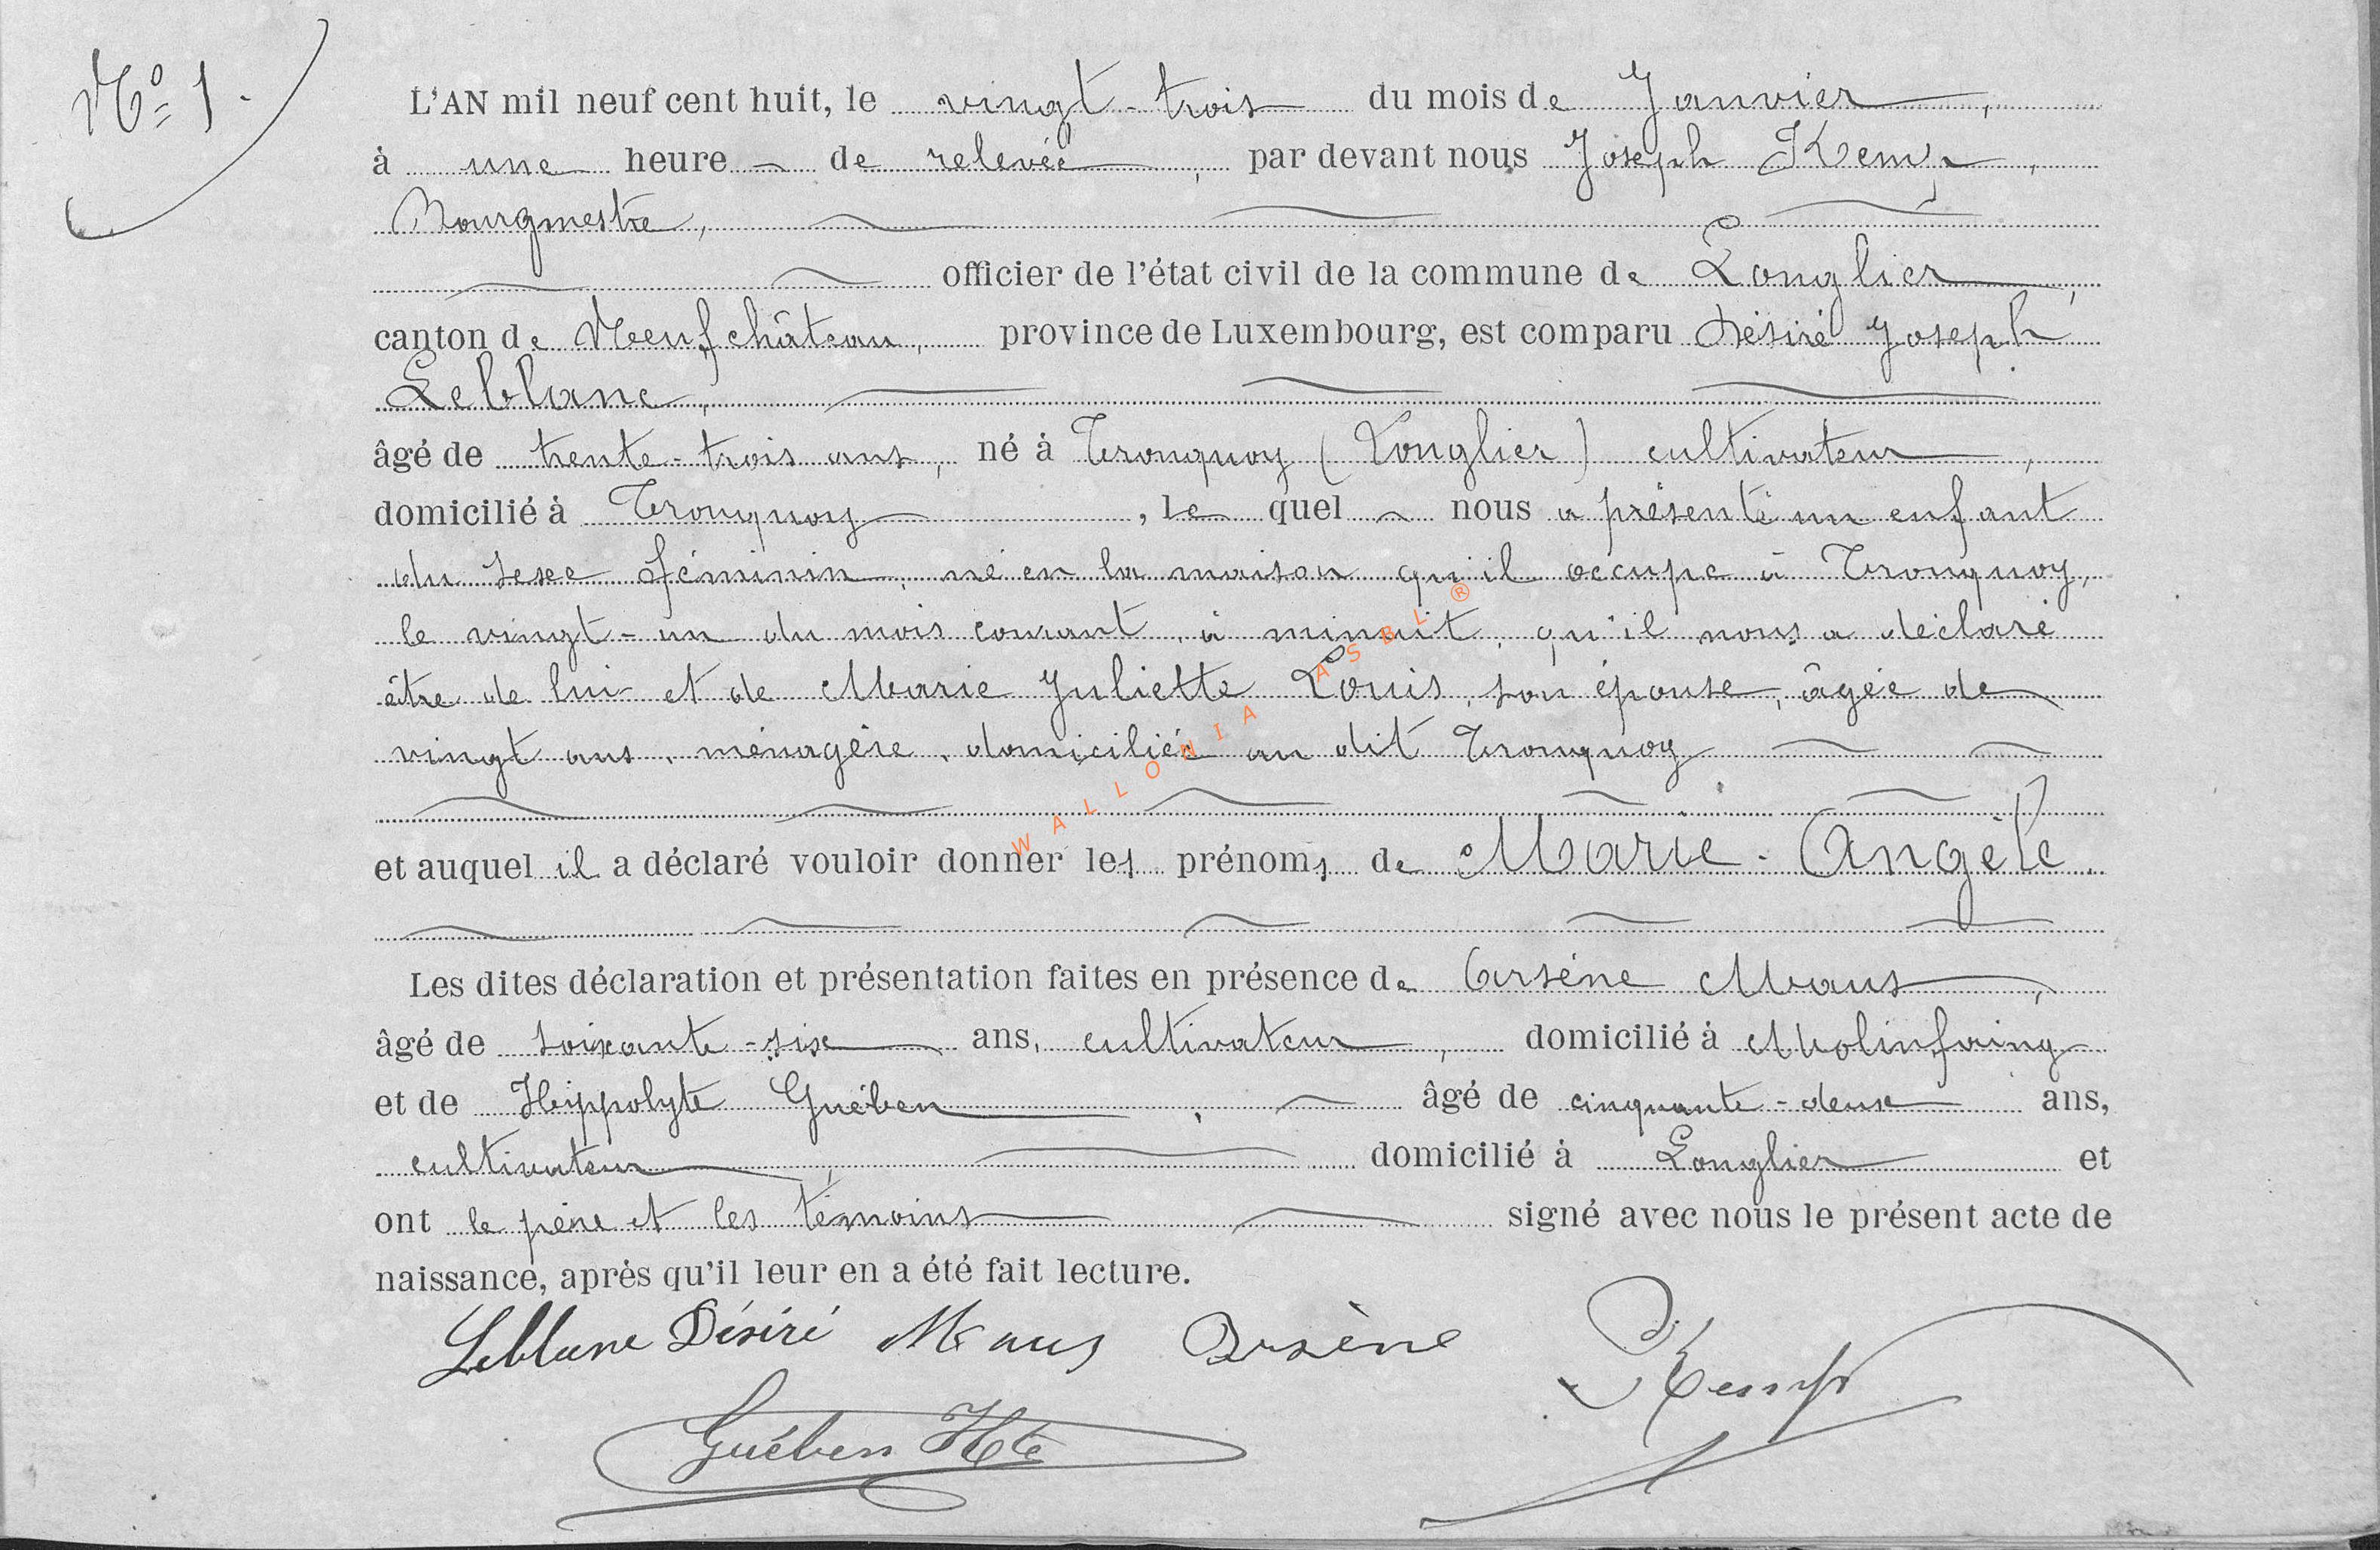 N° 1.
L'AN mil neuf cent huit, le vingt-trois du mois de Janvier,
à une heure de relevée, par devant nous Joseph Kemp,
Bourgmestre,
officier de l'état civil de la commune de Longlier,
canton de Neufchâteau, province de Luxembourg, est comparu Désiré Joseph
Leblanc,
âgé de trente-trois ans, né à Tronquoy (Longlier) cultivateur,
domicilié à Tronquoy, le quel nous a présenté un enfant
du sexe féminin, né en la maison qu'il occupe à Tronquoy,
le vingt-un du mois courant, à minuit, qu'il nous a déclaré
être de lui et de Marie Juliette Louis, son épouse, âgée de
vingt ans, ménagère, domiciliée au dit Tronquoy
et auquel il a déclaré vouloir donner les prénoms de Marie-Angèle.
Les dites déclaration et présentation faites en présence de Arsène Maus,
âgé de soixante-six ans, cultivateur, domicilié à Molinfaing
et de Hippolyte Guében, âgé de cinquante-deux ans,
cultivateur, domicilié à Longlier et
ont le père et les témoins signé avec nous le présent acte de
naissance, après qu'il leur en a été fait lecture.
Leblanc Désiré Maus Arsène
J Kemp
Guében Hte
WALLONIA ASBL ®